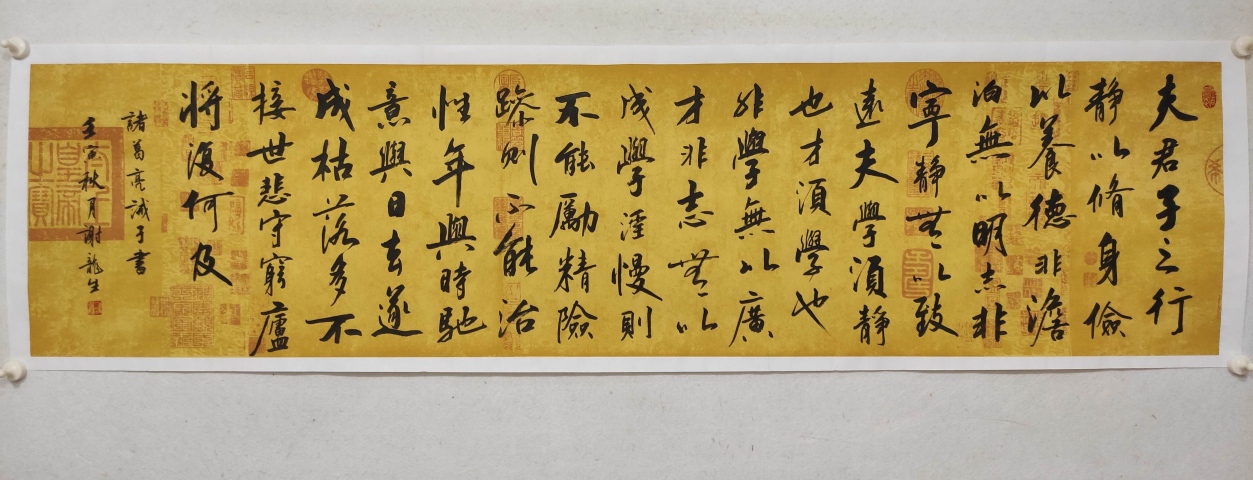 夫君子之行
静以脩身儉
以養德非澹
泊無以明志非
寧静無以致
遠夫學須静
也才須學也
非學無以廣
才非志無以
成學淫慢則
不能勵精險
躁則不能治
性年與時馳
意與日去遂
成枯落多不
接世悲守窮廬
將復何及
諸葛亮誡子書
壬寅秋月謝龍生